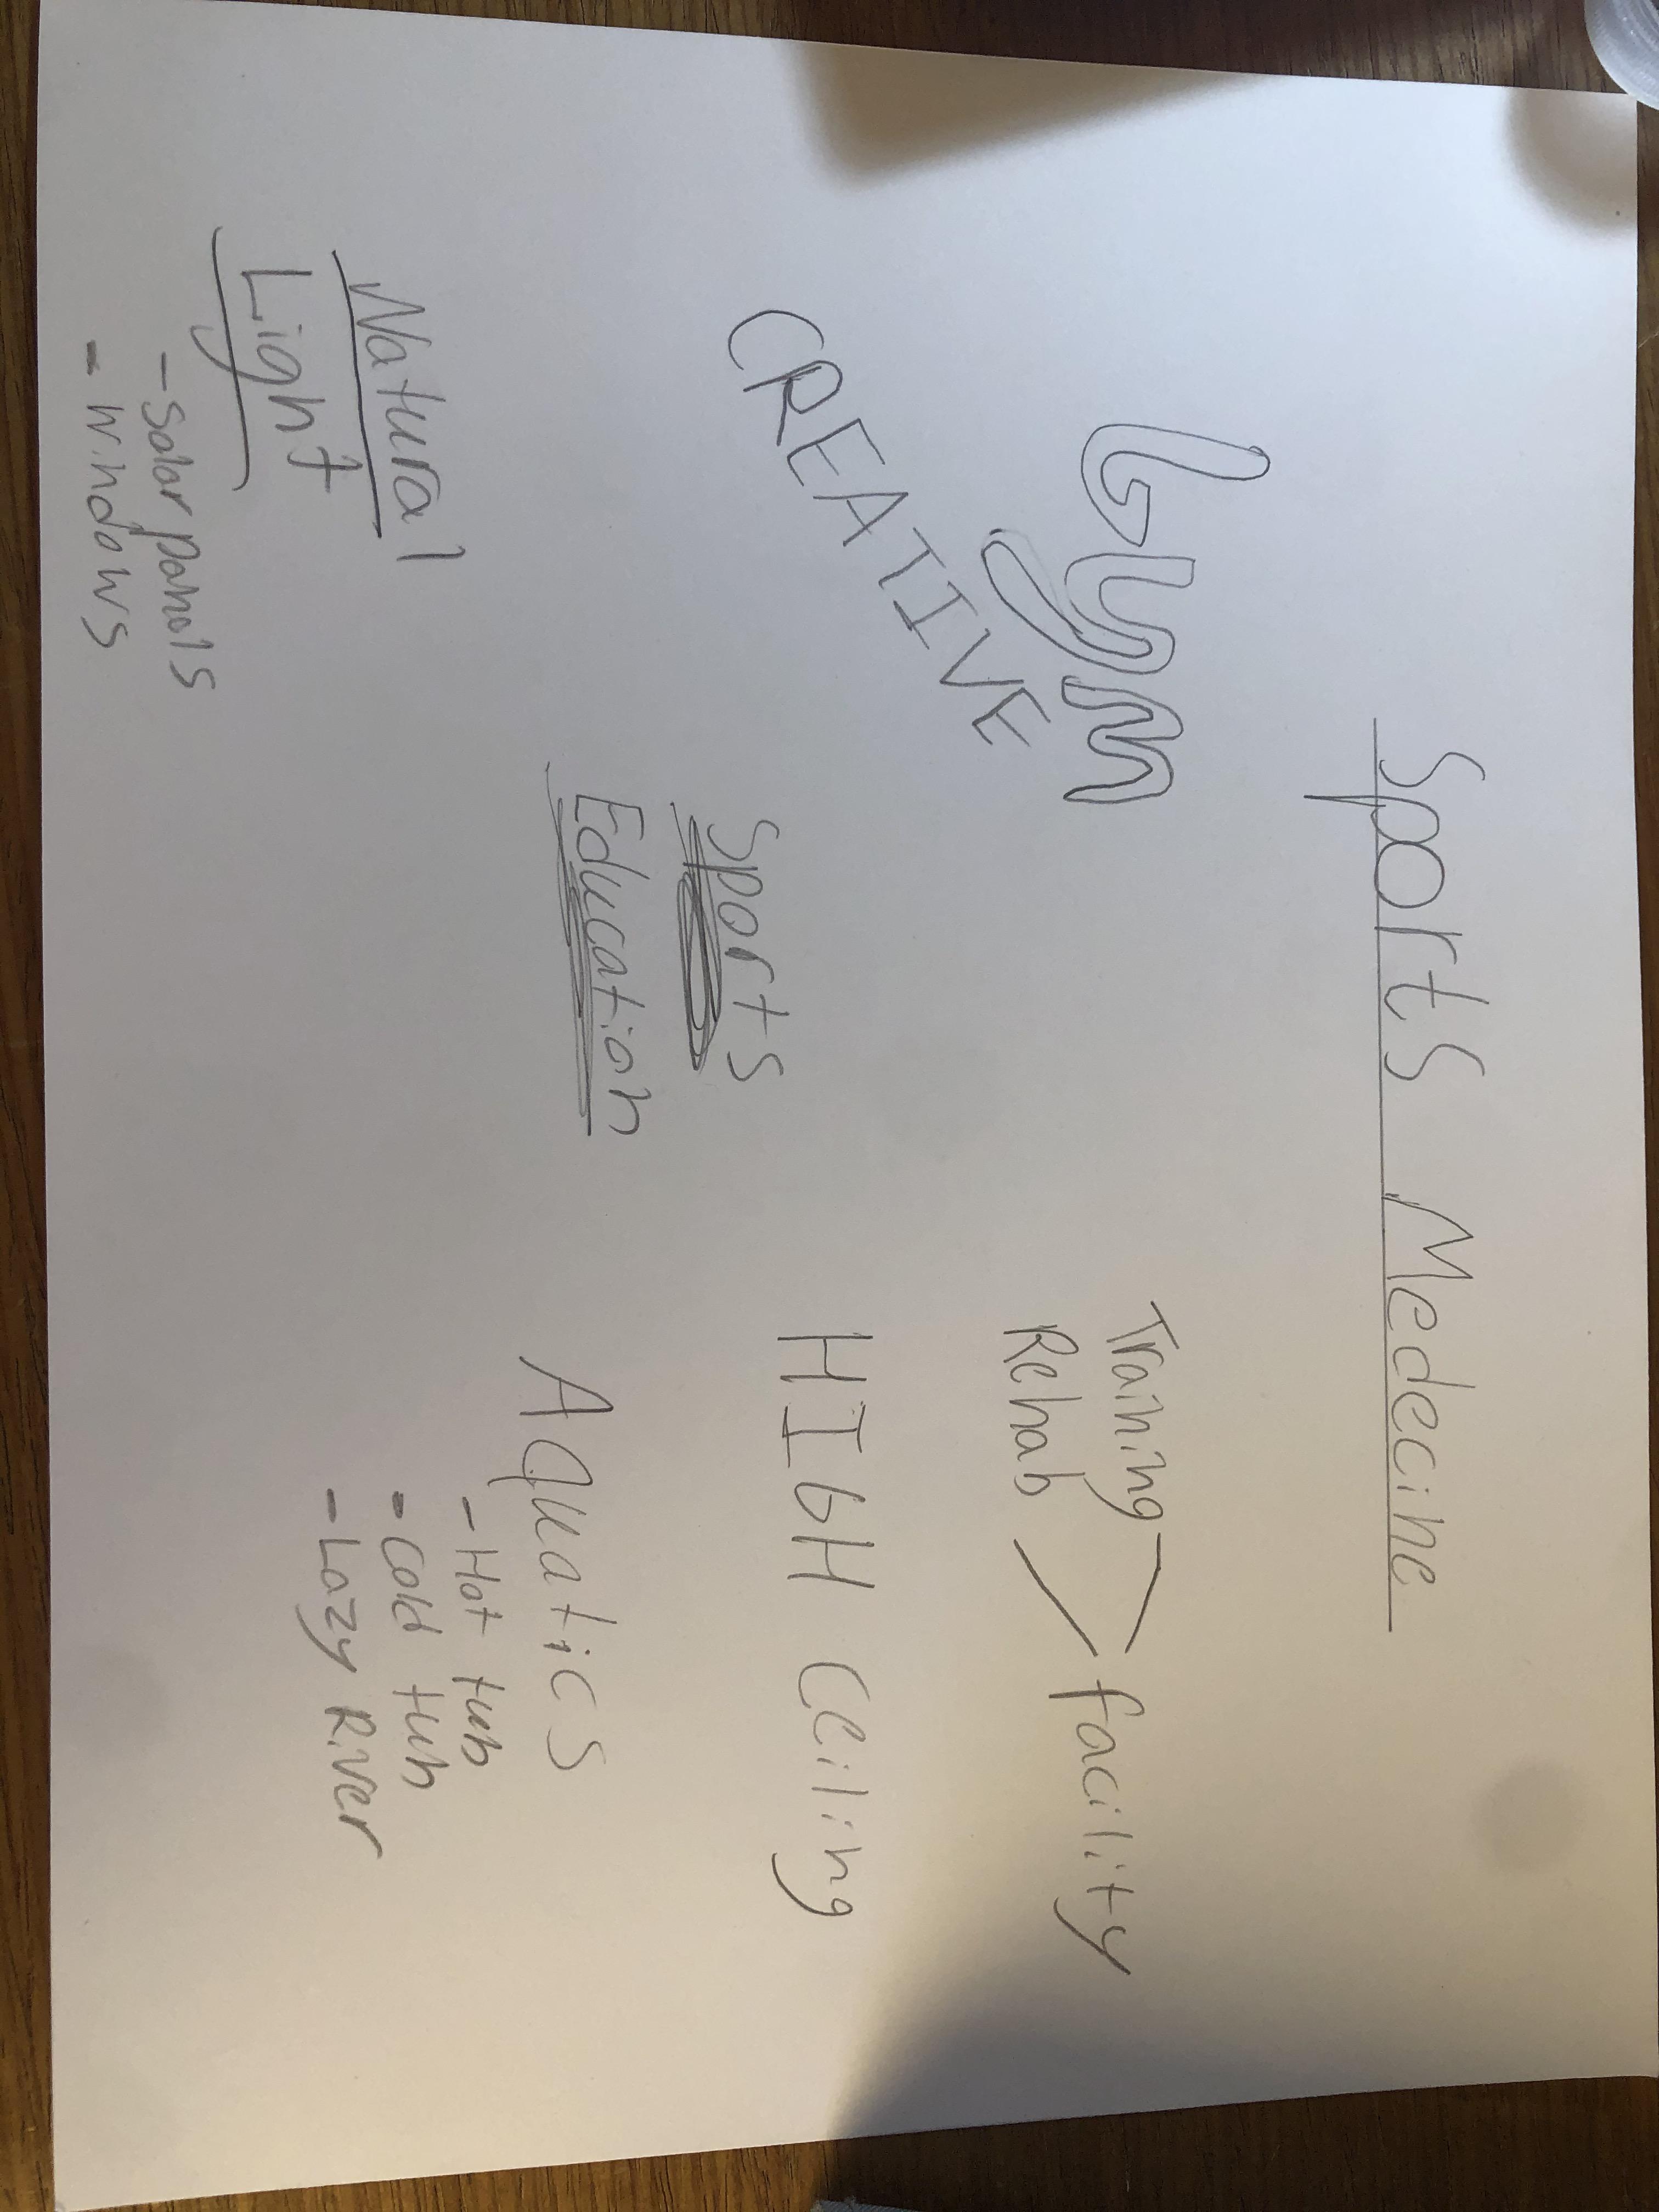 Sports Medecine
Gym
CREATIVE
Training
Rehab
facility
Sports
Education
HIGH Ceiling
Natural
Light
- Solar panals
- windows
Aquatics
- Hot tub
- Cold tub
- Lazy River